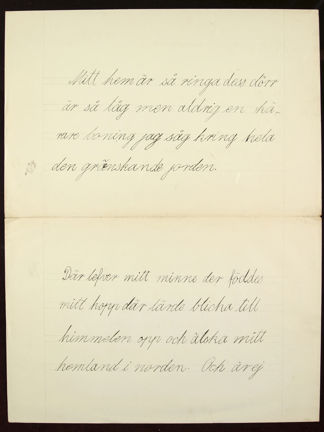 Mitt hem är så ringa dess dörr
är så låg men aldrig en kä-
rare boning jag såg kring hela
den grönskande jorden.
Där lefver mitt minne der föddes
mitt hopp där lärde blicka till
himmelen opp och älska mitt
hemland i norden. Och är ej